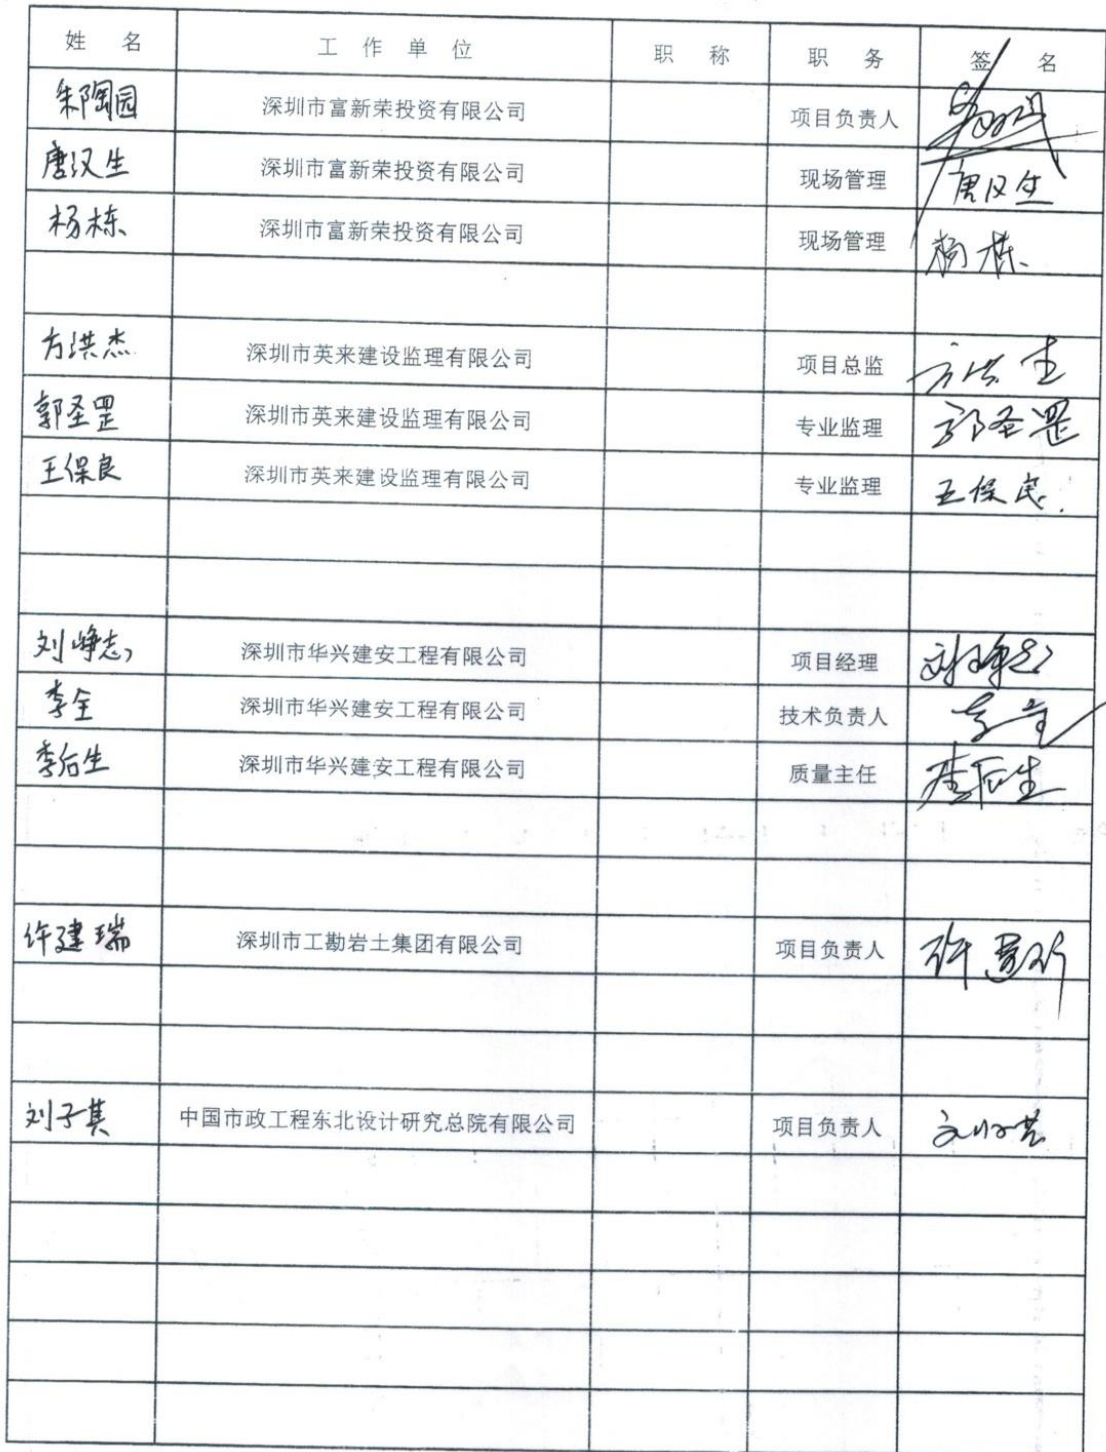 姓 名 工 作 单 位 职 称 职 务 签 名
朱陶园 深圳市富新荣投资有限公司 项目负责人
唐汉生 深圳市富新荣投资有限公司 现场管理 唐汉生
杨栋 深圳市富新荣投资有限公司 现场管理 杨栋
方洪杰 深圳市英来建设监理有限公司 项目总监 方洪杰
郭圣罡 深圳市英来建设监理有限公司 专业监理 郭圣罡
王保良 深圳市英来建设监理有限公司 专业监理 王保良
刘峥志 深圳市华兴建安工程有限公司 项目经理 刘峥志
李全 深圳市华兴建安工程有限公司 技术负责人 李全
李后生 深圳市华兴建安工程有限公司 质量主任 李后生
许建瑞 深圳市工勘岩土集团有限公司 项目负责人 许建瑞
刘子其 中国市政工程东北设计研究总院有限公司 项目负责人